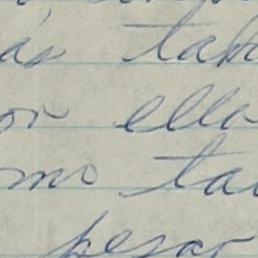 ás tab
on ella
omo ta
pesar